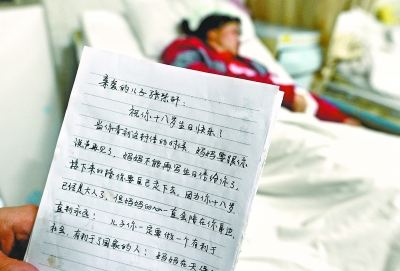 亲爱的儿子张
祝你十八岁生日快乐！
当你看到这封信的时候，妈妈要跟你
说再见了，妈妈不能再写生日信给你了，
接下来的路你要自己走下去。因为你十八岁，
已经是大人了。但妈妈的心一直会陪在你身边，
直到永远！儿子你一定要做一个有利于
社会，有利于国家的人！妈妈在天